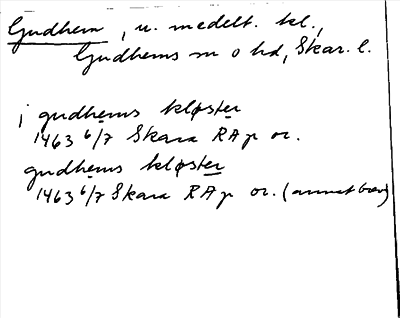 Gudhem, u. medelt. kl.,
Gudhems sn o hd, Skar. l.
i gudhems kløster
1463 6/7 Skara RAp or.
gudhems kløster
1463 6/7 Skara RAp or. (annat brev)